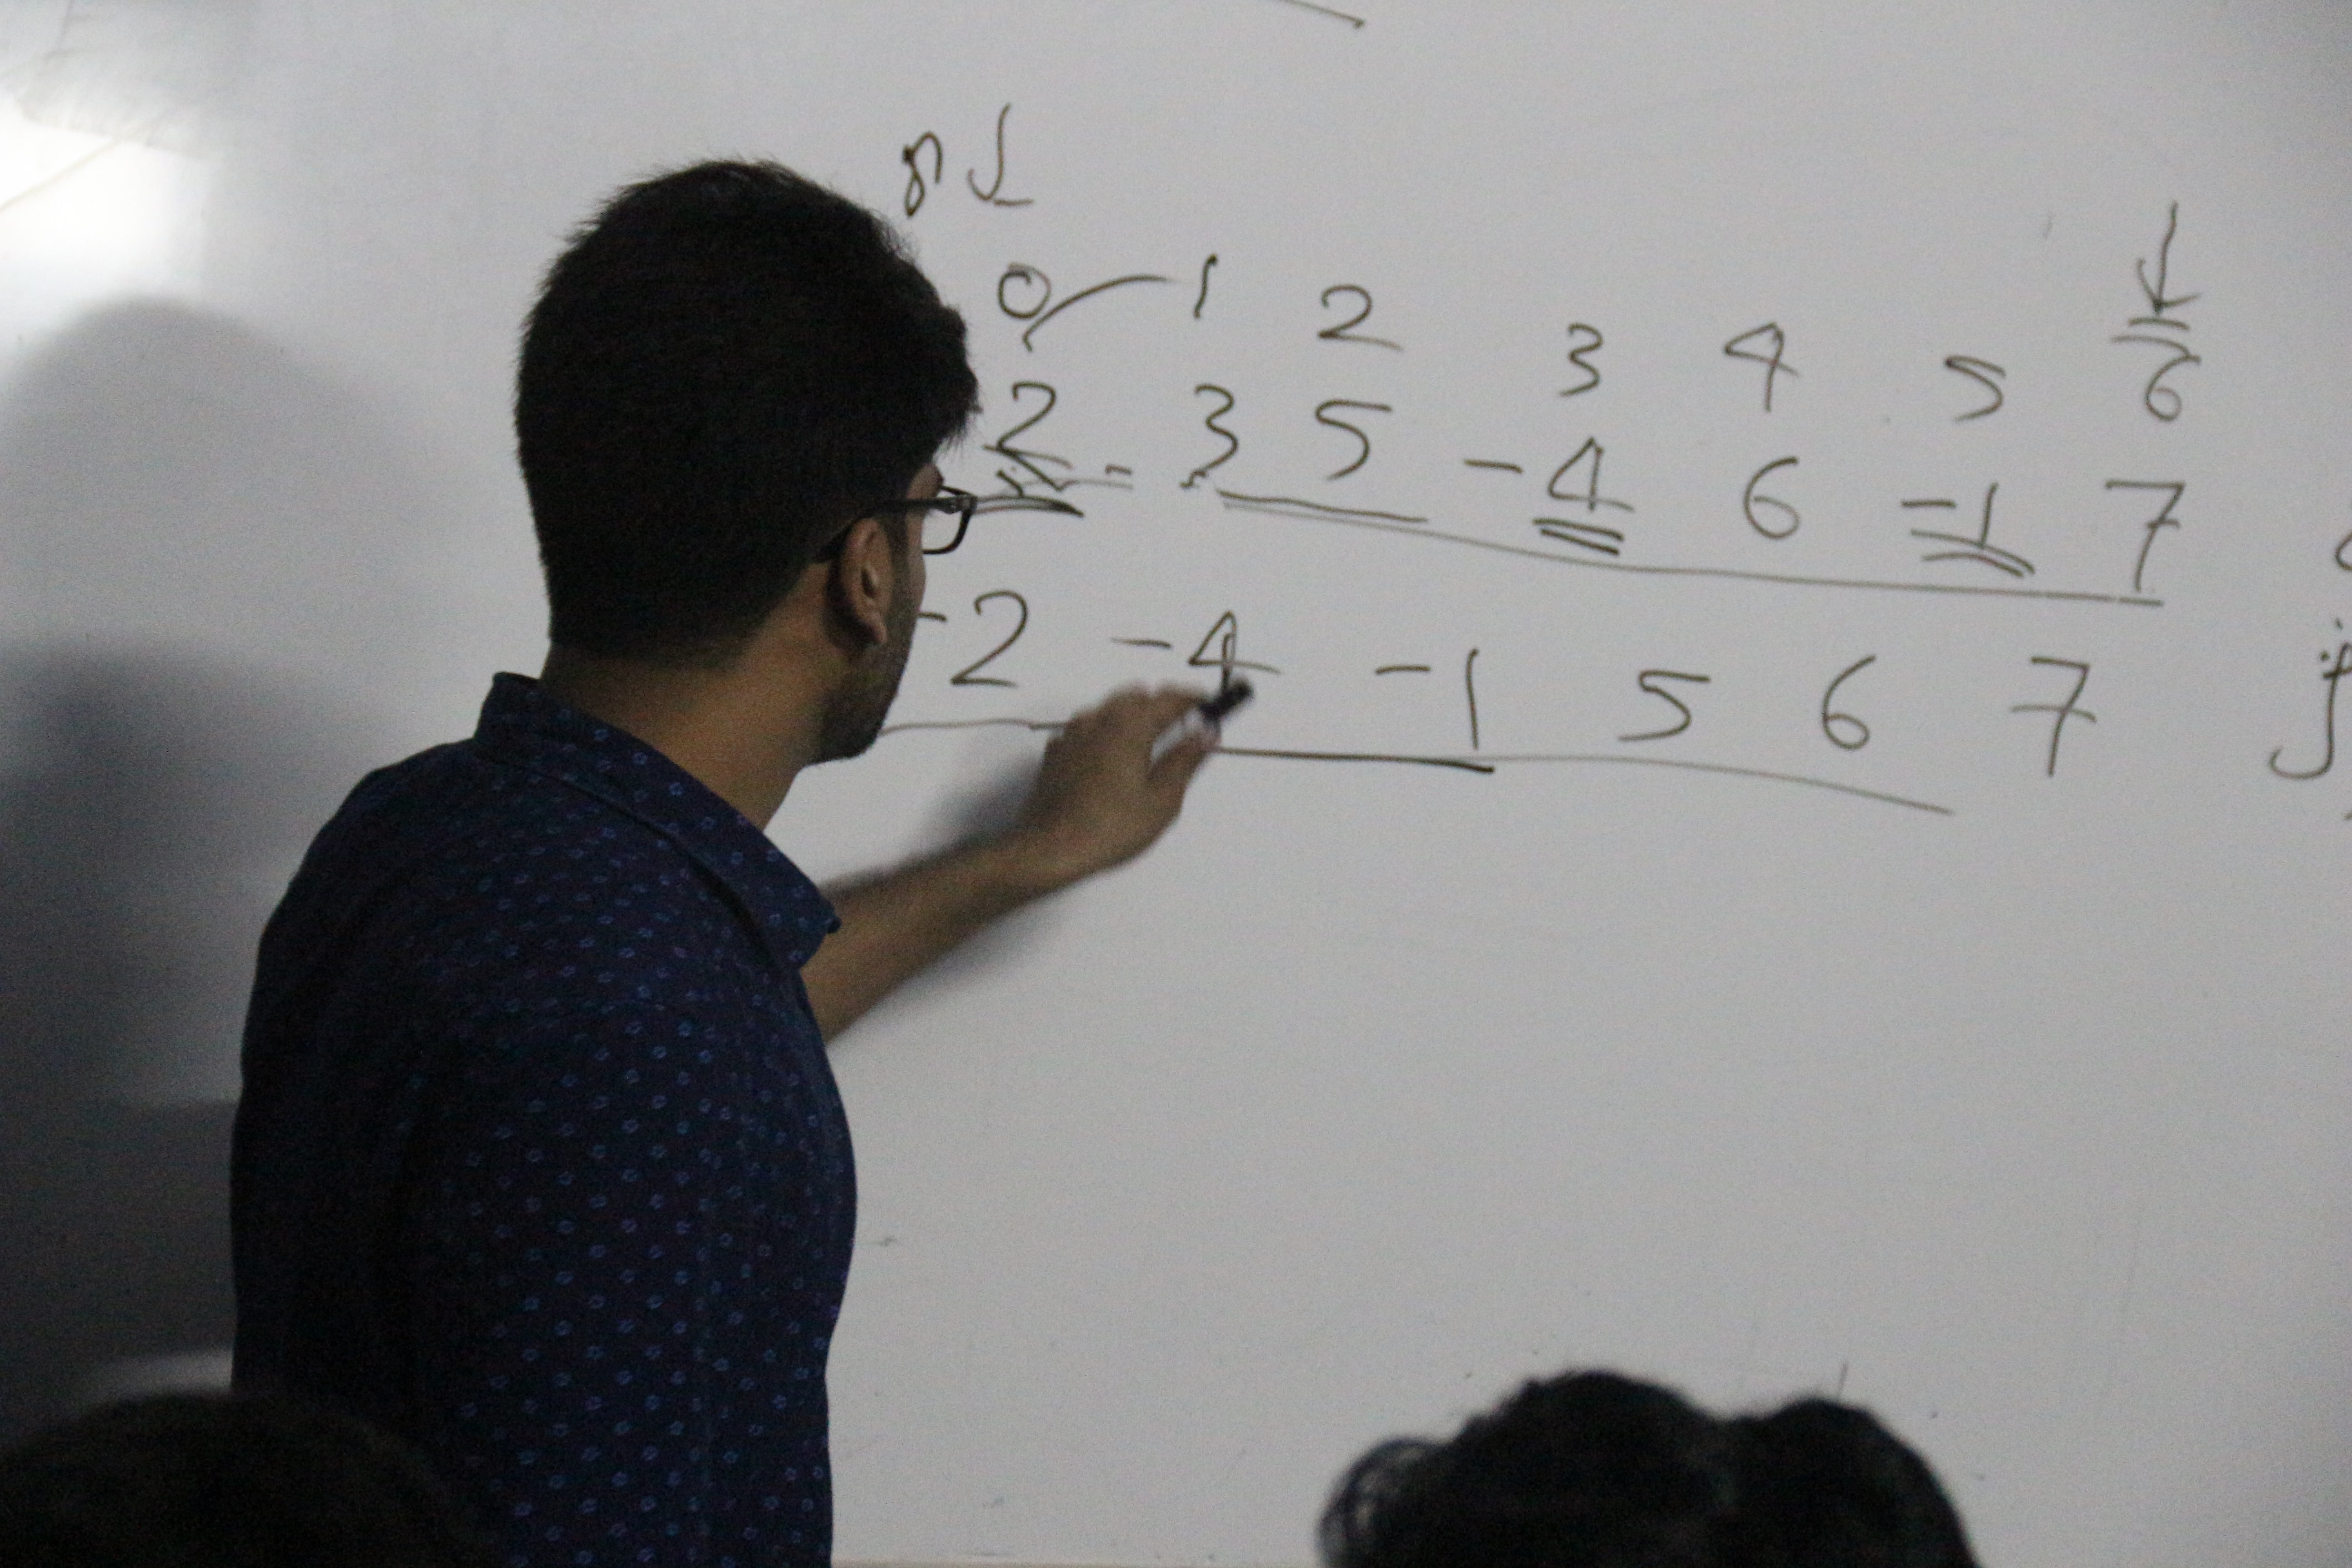 0 1 2 3 4 5 6
2 3 5 -4 6 -1 7
-2 -4 -1 5 6 7
j